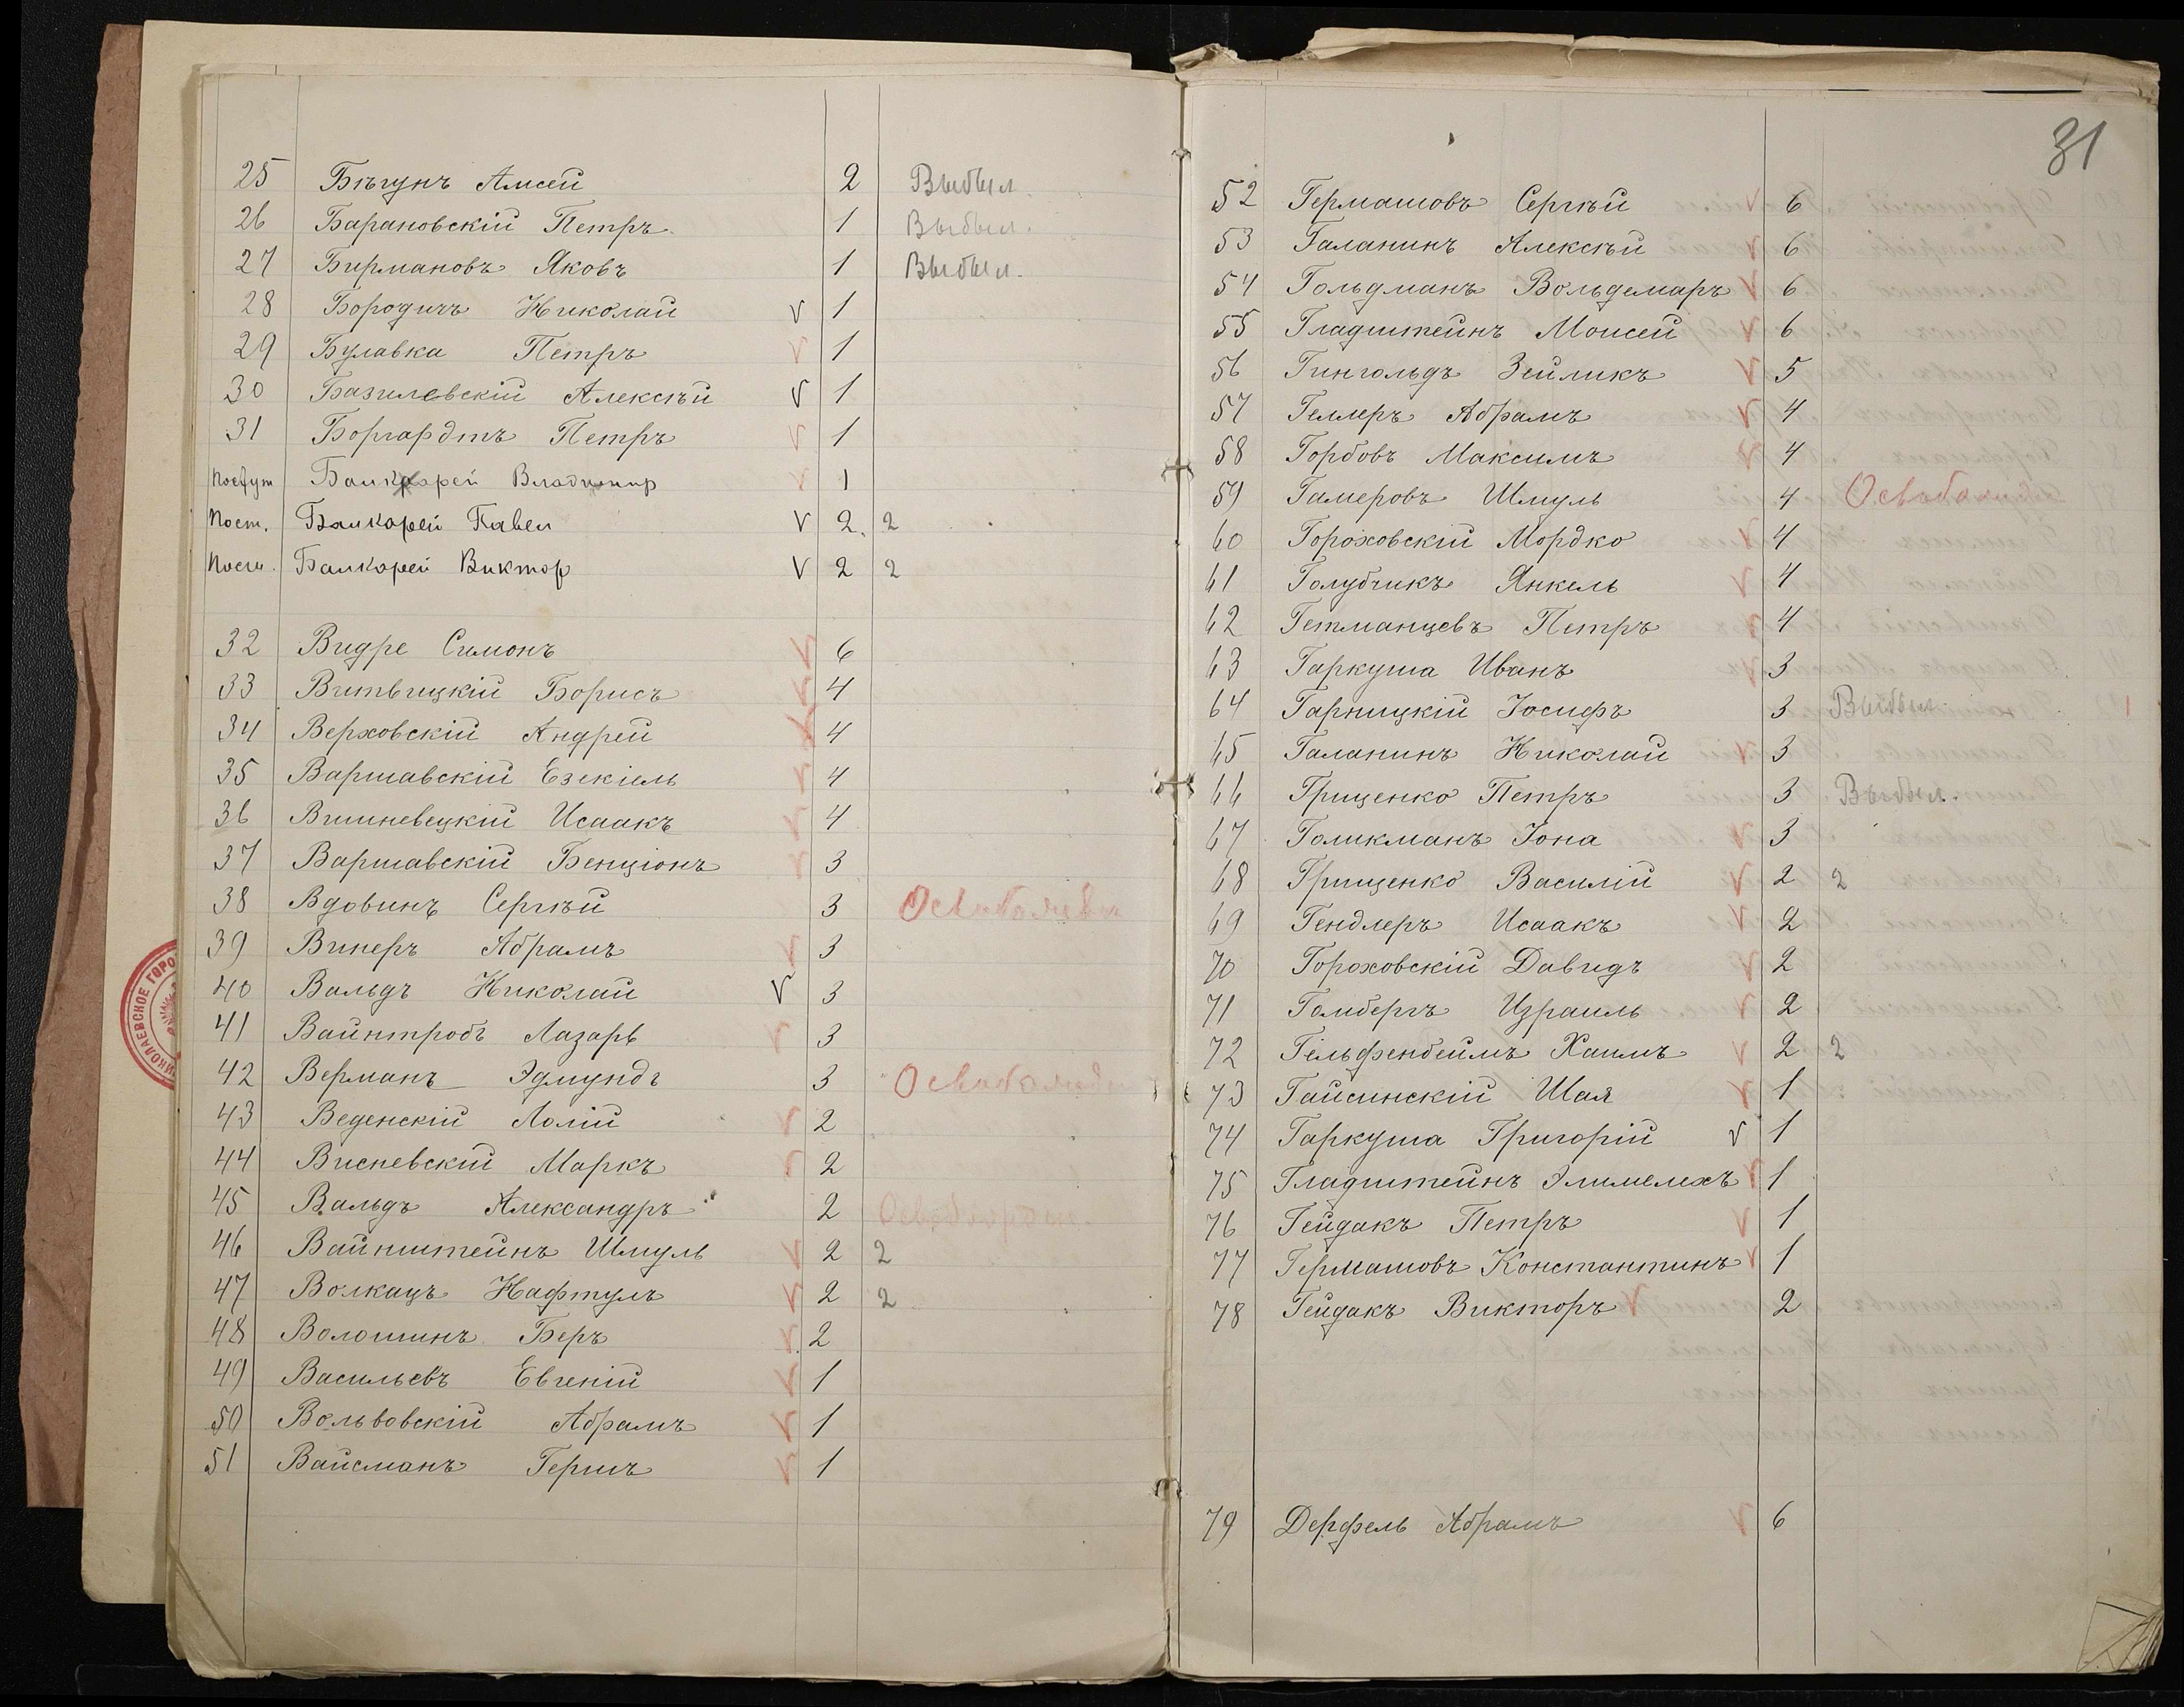 25 Бѣгунъ Амсей 2 Выбыл.
26 Барановскій Петръ 1 Выбыл.
27 Бирмановъ Яковъ 1 Выбыл.
28 Бородичъ Николай V 1
29 Булавка Петръ V 1
30 Базилевскій Алексѣй V 1
31 Боргардтъ Петръ V 1
Владимир V 1
Пост. Балкорей Павел V 2. 2
Пост. Балкорей Виктор V 2 2
32 Видре Симонъ V 6
33 Витвицкій Борисъ V 4
34 Верховскій Андрей V 4
35 Варшавскій Езекіель V 4
36 Вишневецкій Исаакъ V 4
37 Варшавскій Бенціонъ V 3
38 Вдовинъ Сергѣй 3
39 Винеръ Абрамъ V 3
40 Вальдъ Николай V 3
41 Вайнтробъ Лазарь V 3
42 Верманъ Эдмундъ 3
43 Веденскій Лолій V 2
44 Висневскій Маркъ V 2
45 Вальдъ Александръ 2
46 Вайнштейнъ Шмуль V 2 2
47 Волкацъ Нафтулъ V 2 2
48 Волошинъ Беръ V 2
49 Васильевъ Евгеній V 1
50 Вольвовскій Абрамъ V 1
51 Вайсманъ Гершъ V 1
НИКОЛАЕВСКОЕ ГОРО
31
52 Гермашовъ Сергѣй V 6
53 Галанинъ Алексѣй V 6
54 Гольдманъ Вольдемаръ V 6
55 Гладштейнъ Моисей V 6
56 Гингольдъ Зейликъ V 5
57 Геллеръ Абрамъ V 4
58 Горбовъ Максимъ V 4
59 Гамеровъ Шмуль 4
60 Гороховскій Мордко V 4
61 Голубчикъ Янкель V 4
62 Гетманцевъ Петръ V 4
63 Гаркуша Иванъ V 3
64 Гарницкій Іосифъ 3 Выбыл.
65 Галанинъ Николай V 3
66 Гриценко Петръ 3 Выбыл.
67 Голикманъ Іона V 3
68 Грищенко Василій V 2 2
69 Гендлеръ Исаакъ V 2
70 Гороховскій Давидъ V 2
71 Гомбергъ Израиль V 2
72 Гельфенбеймъ Хаимъ V 2 2
73 Гайсинскій Шая V 1
74 Гаркуша Григорій V 1
75 Гладштейнъ Элимелехъ V 1
76 Гейдакъ Петръ V 1
77 Гермашовъ Константинъ V 1
78 Гейдакъ Викторъ V 2
79 Дерфель Абрамъ V 6